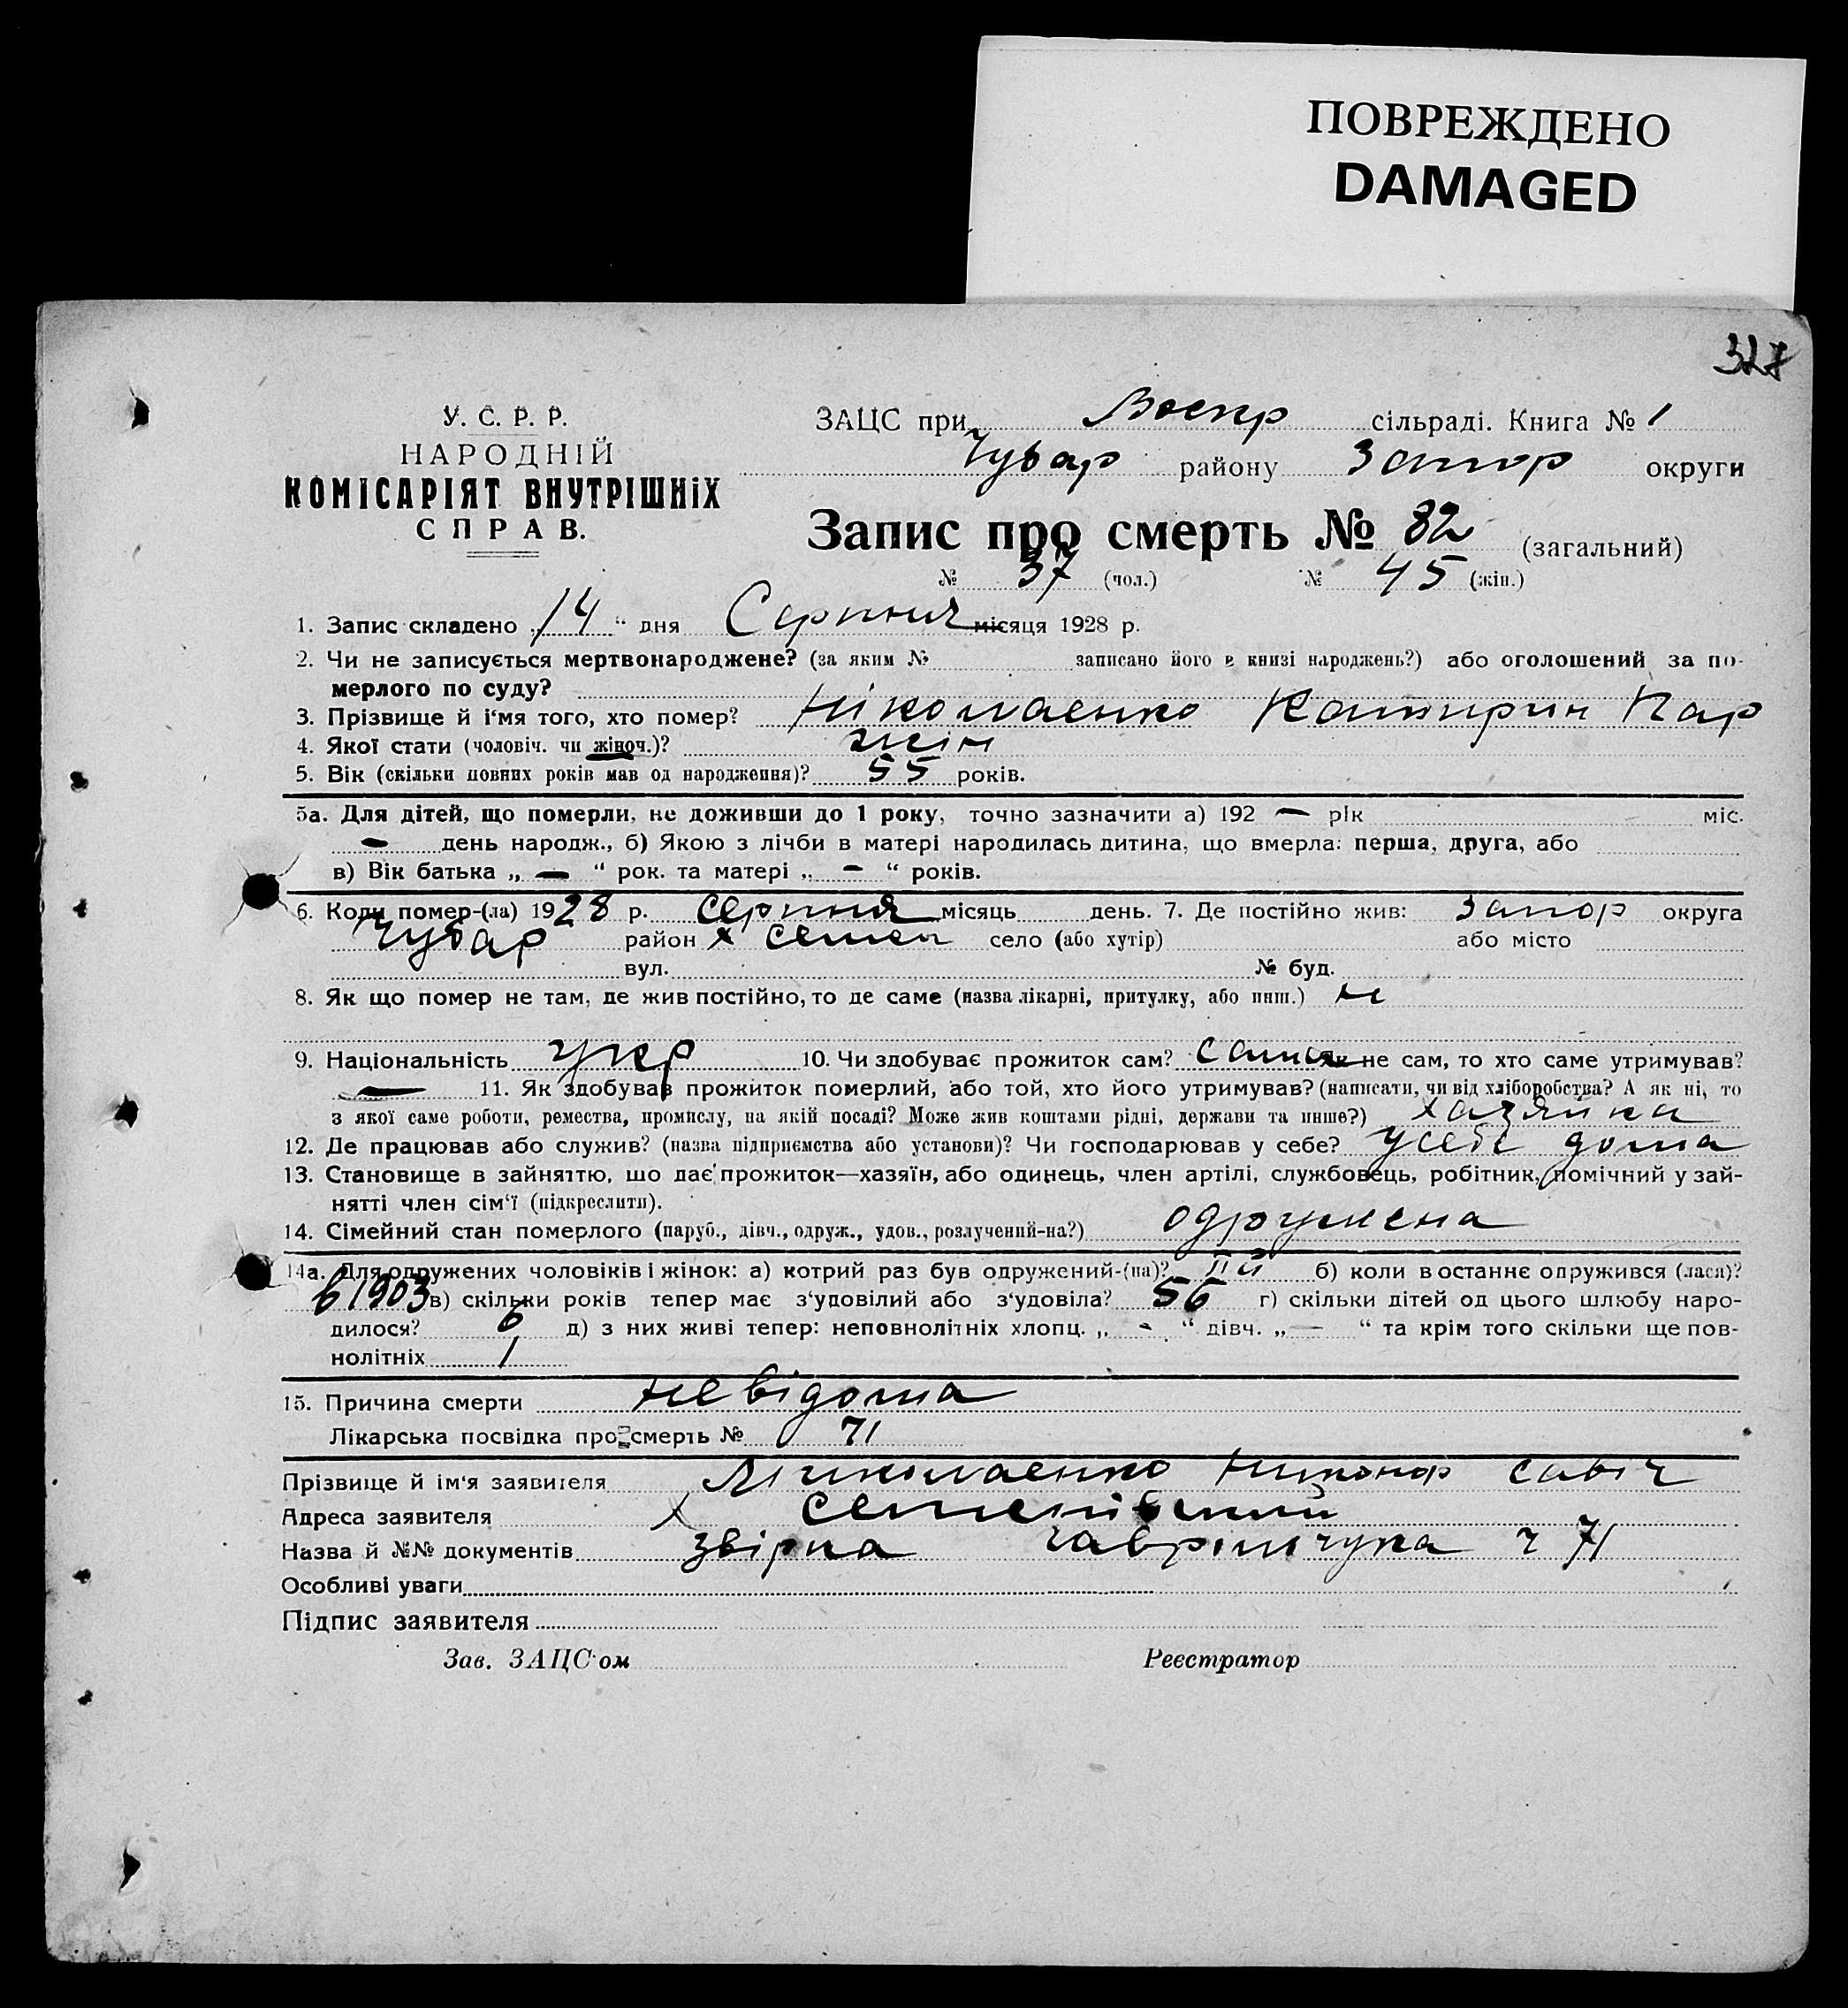 ПОВРЕЖДЕНО
DAMAGED
328
У. С. Р. Р.
НАРОДНІЙ
КОМІСАРІЯТ ВНУТРІШНІХ
СПРАВ.
ЗАЦС при Воскр сільраді. Книга № 1
Чубар району Запор округи
Запис про смерть № 82 (загальний)
№ 37 (чол.) № 45 (жін.)
1. Запис складено 14 " дня Серпня місяця 1928 р.
2. Чи не записується мертвонароджене? (за яким № записано його в книзі народжень?) або оголошений за по-
мерлого по суду?
3. Прізвище й і'мя того, хто помер? Ніколаенко Катирин Кар
4. Якої стати (чоловіч. чи жіноч.)? жін
5. Вік (скільки повних років мав од народження)? 55 років.
5а. Для дітей, що померли, не доживши до 1 року, точно зазначити а) 192 — рік міс.
— день народж., б) Якою з лічби в матері народилась дитина, що вмерла: перша, друга, або
в) Вік батька „ — " рок. та матері „ - " років.
6. Коли помер-(ла) 1928 р. серпня місяць день. 7. Де постійно жив: Запор округа
Чубар район х Семен село (або хутір) або місто
вул. № буд.
8. Як що помер не там, де жив постійно, то де саме (назва лікарні, притулку, або инш.) н
9. Національність укр 10. Чи здобуває прожиток сам? сама як не сам, то хто саме утримував?
— 11. Як здобував прожиток померлий, або той, хто його утримував? (написати, чи від хліборобства? А як ні, то
з якої саме роботи, ремества, промислу, на якій посаді? Може жив коштами рідні, держави та инше?) хазяйка
12. Де працював або служив? (назва підприємства або установи)? Чи господарював у себе? усебе дома
13. Становище в зайняттю, що дає прожиток—хазяїн, або одинець, член артілі, службовець, робітник, помічний у зай-
нятті член сім'ї (підкреслити).
14. Сімейний стан померлого (паруб., дівч., одруж., удов., розлучений-на?) одружена
14а. Для одружених чоловіків і жінок: а) котрий раз був одружений-(на)? II й б) коли востаннє одружився (лася)?
в 1903 в) скільки років тепер має з'удовілий або з'удовіла? 56 г) скільки дітей од цього шлюбу наро-
дилося? 6 д) з них живі тепер: неповнолітніх хлопц. „ - " дівч. „ — " та крім того скільки ще пов-
нолітніх 1
15. Причина смерти невідома
Лікарська посвідка про смерть № 71
Прізвище й ім'я заявителя Миколаенко Никонор Савіч
Адреса заявителя х Семенівский
Назва й №№ документів Звірка Гаврильчука ч 71
Особливі уваги
Підпис заявителя
Зав. ЗАЦС'ом Реєстратор